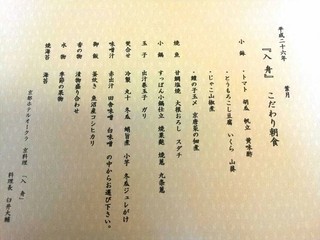 平成二十六年 葉月
『入舟』 こだわり朝食
小鉢 ・トマト 胡瓜 帆立 黄味酢
・とうもろこし豆腐 いくら 山葵
・じゃこ山椒煮
・鰻の子玉メ 京唐菜の佃煮
焼魚 甘鯛塩焼 大根おろし スダチ
小鍋 すっぽん小鍋仕立 焼粟麩 焼葱 九条葱
玉子 出汁巻玉子 ガリ
焚合せ 冷製 丸十 冬瓜 蛸旨煮 小芋 冬瓜ジュレがけ
味噌汁 赤出汁 田舎味噌 白味噌 の中からお選び下さい。
御飯 釜炊き 魚沼産コシヒカリ
香の物 漬物盛り合わせ
水物 季節の果物
焼海苔 海苔
京都ホテルオークラ 京料理 「入舟」
料理長 臼井大輔